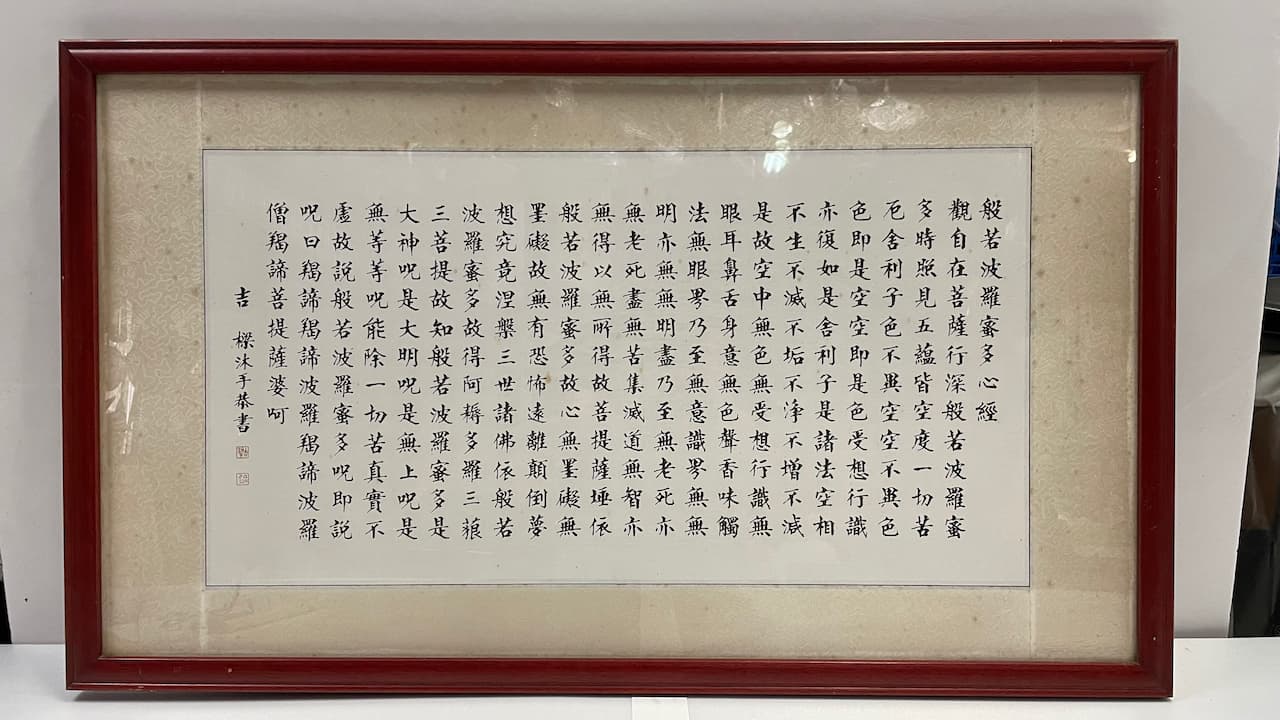 般若波羅蜜多心經
觀自在菩薩行深般若波羅蜜
多時照見五蘊皆空度一切苦
厄舍利子色不異空空不異色
色即是空空即是色受想行識
亦復如是舍利子是諸法空相
不生不滅不垢不淨不增不減
是故空中無色無受想行識無
眼耳鼻舌身意無色聲香味觸
法無眼界乃至無意識界無無
明亦無無明盡乃至無老死亦
無老死盡無苦集滅道無智亦
無得以無所得故菩提薩埵依
般若波羅蜜多故心無罣礙無
罣礙故無有恐怖遠離顛倒夢
想究竟涅槃三世諸佛依般若
波羅蜜多故得阿耨多羅三藐
三菩提故知般若波羅蜜多是
大神呪是大明呪是無上呪是
無等等呪能除一切苦真實不
虛故説般若波羅蜜多呪即説
呪曰羯諦羯諦波羅羯諦波羅
僧羯諦菩提薩婆呵
吉 樑沐手恭書